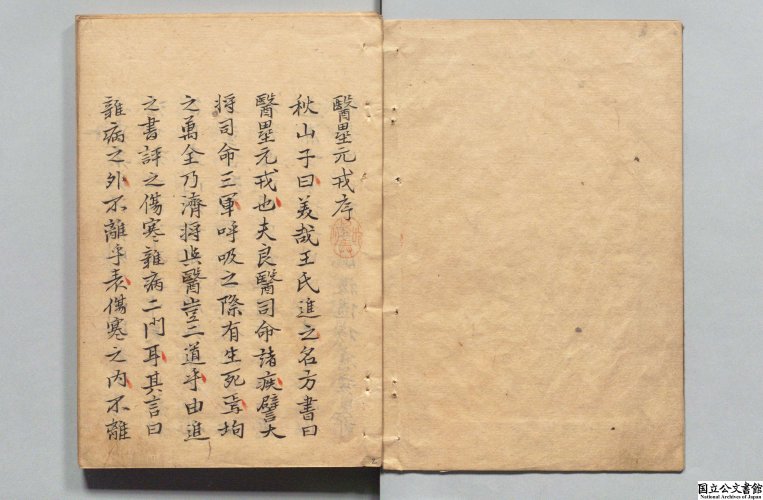 醫塁元戎序
秋山子曰美哉王氏進之名方書曰
醫塁元戎也夫良醫司命諸疾譬大
将司命三軍呼吸之際有生死焉均
之萬全乃濟将與醫豈二道乎由進
之書評之傷寒雜病二門耳其言曰
雜病之外不離乎表傷寒之内不離
国立公文書館
National Archives of Japan